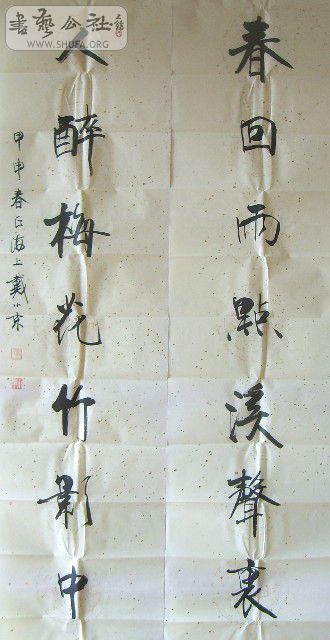 春回雨點溪聲裏
人醉梅花竹影中
甲申春日海上戴小京
書藝公社
WWW.SHUFA.ORG